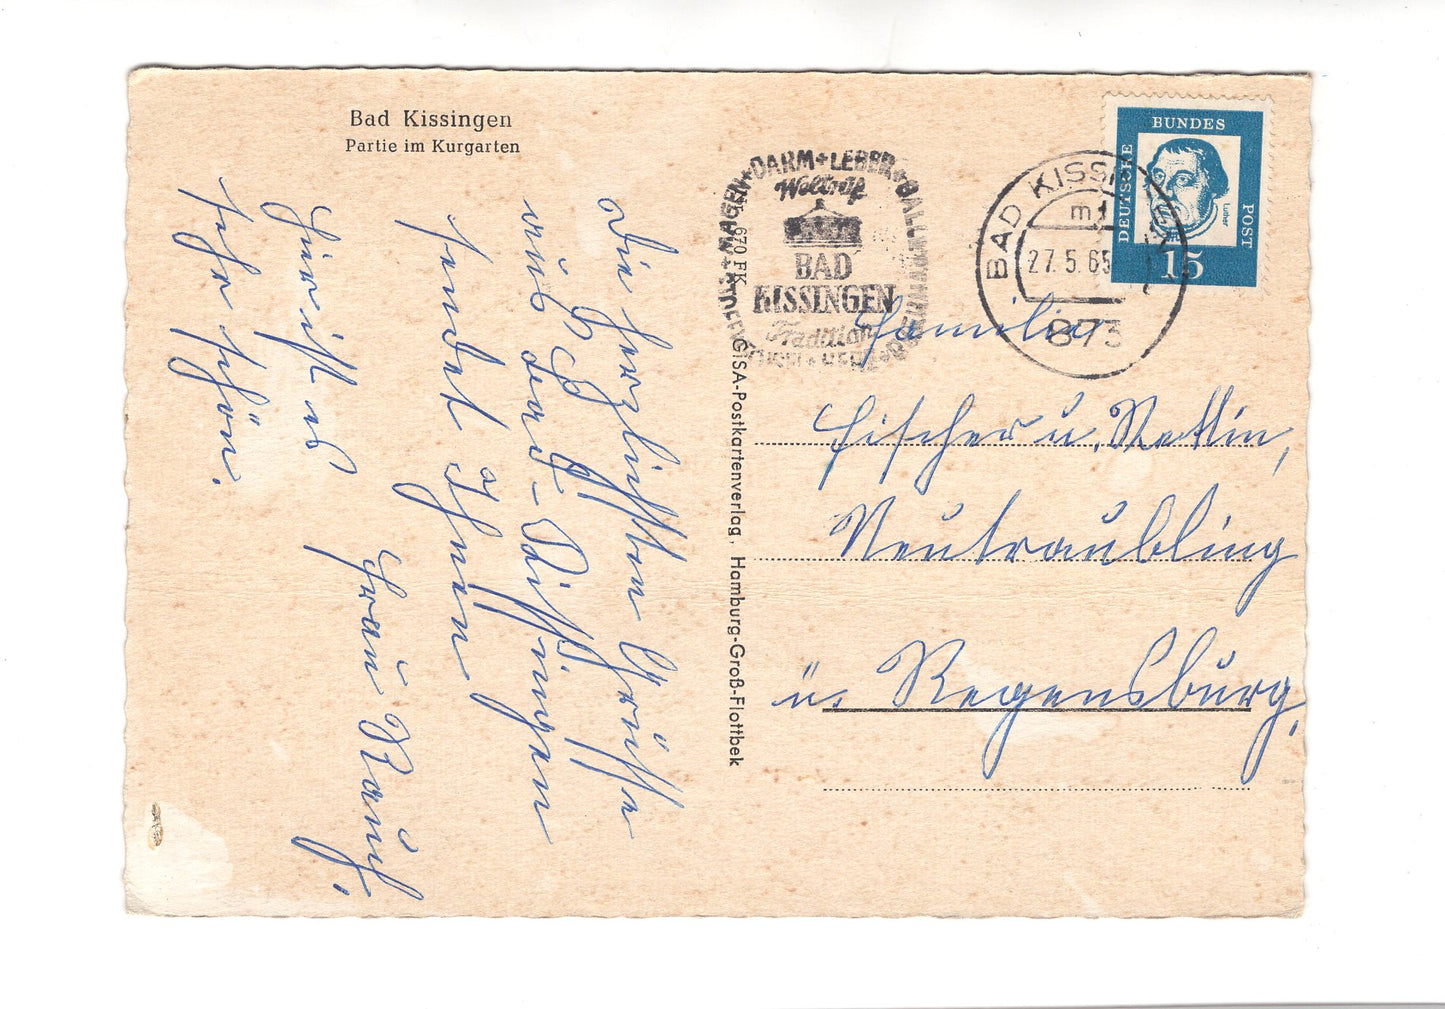 Bad Kissingen
Partie im Kurgarten
Die herzlichsten Grüsse
aus Bad-Kissingen
sendet Ihnen
Frau Rauch,
hier ist es
sehr schön.
670 FK
GISA-Postkartenverlag, Hamburg-Groß-Flottbek
DARM+LEBER+GALLE
Weltruf
BAD
KISSINGEN
Tradition
BAD KISSINGEN
27.5.65
873
DEUTSCHE
BUNDES
POST
Luther
15
Familie
Fischer u.
Neutraubling
ü. Regensburg,